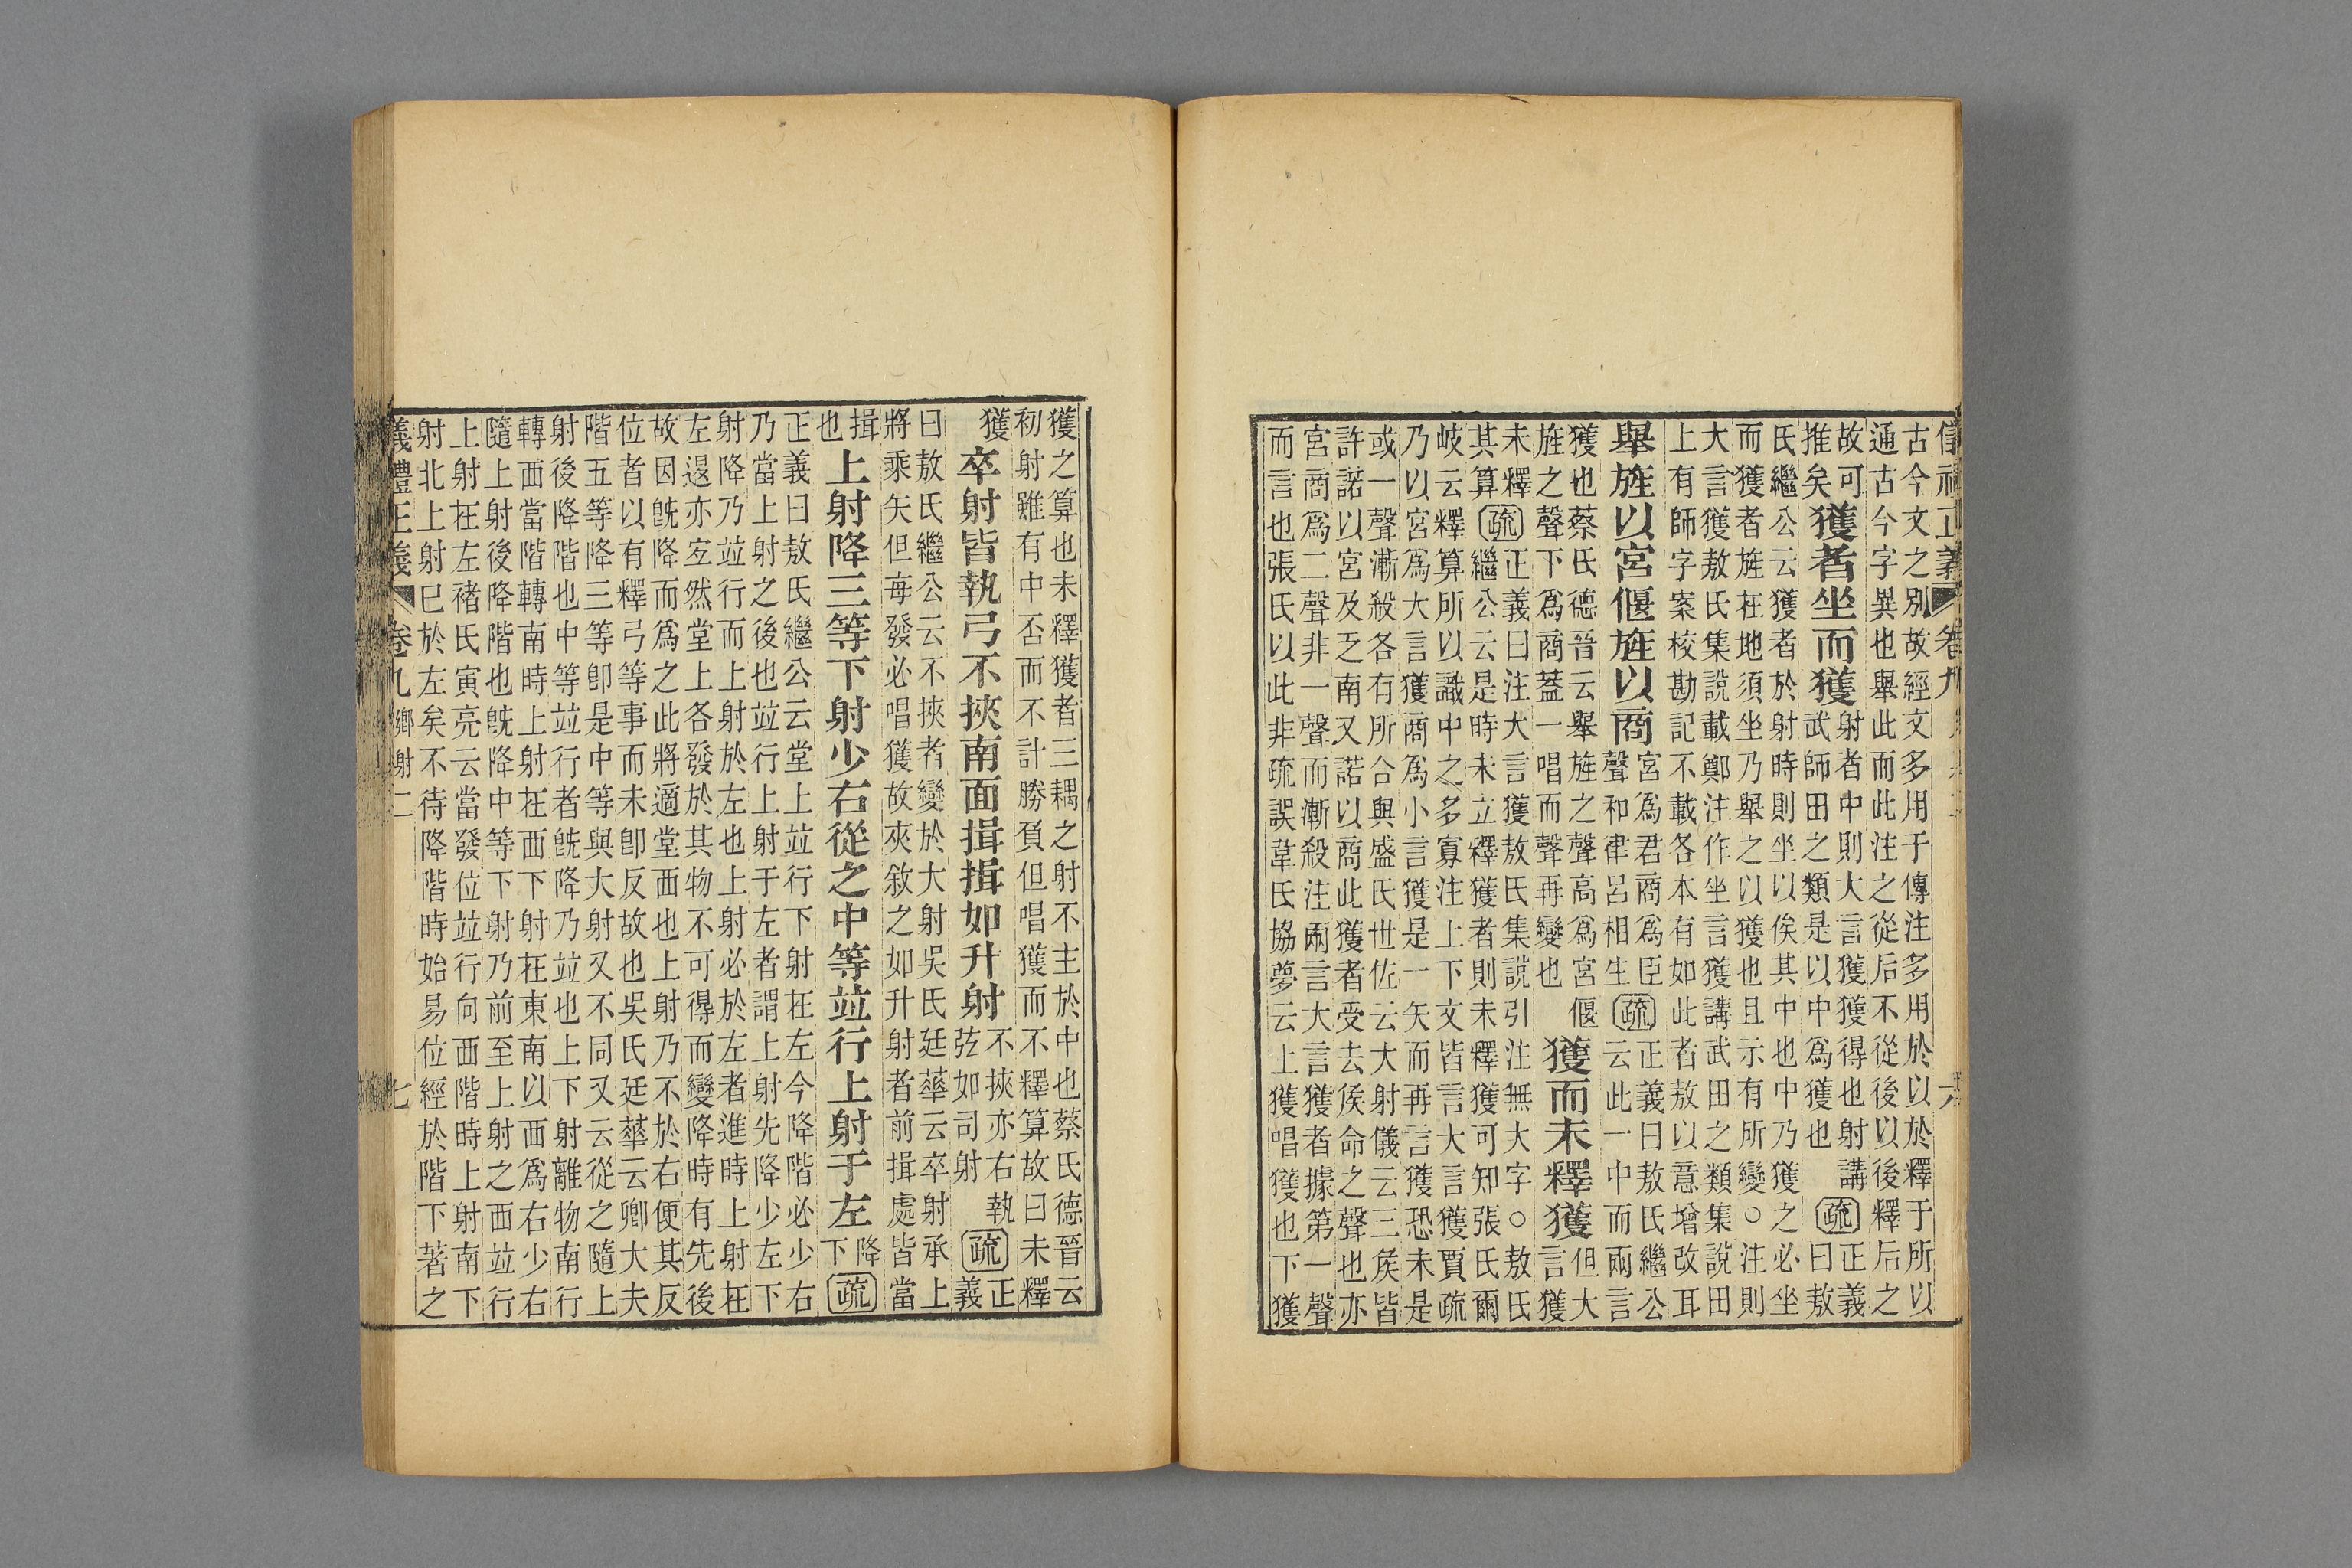 正義 卷九 六
古今文之別故經文多用于傳注多用於以於釋于所以
通古今字異也舉此而此注之從后不從後以後釋后之
故可
推矣
獲者坐而獲
射者中則大言獲獲得也射講
武師田之類是以中爲獲也
疏
正義
曰敖
氏繼公云獲者於射時則坐以俟其中也中乃獲之必坐
而獲者旌在地須坐乃舉之以獲也且示有所變○注則
大言獲敖氏集說載鄭注作坐言獲講武田之類集說田
上有師字案校勘記不載各本有如此者敖以意增改耳
舉旌以宮偃旌以商
宮爲君商爲臣
聲和律呂相生
疏
正義曰敖氏繼公
云此一中而兩言
獲也蔡氏德晉云舉旌之聲高爲宮偃
旌之聲下爲商蓋一唱而聲再變也
獲而未釋獲
但大
言獲
未釋
其算
疏
正義曰注大言獲敖氏集說引注無大字○敖氏
繼公云是時未立釋獲者則未釋獲可知張氏爾
岐云釋算所以識中之多寡注上下文皆言大言獲賈疏
乃以宮爲大言獲商爲小言獲是一矢而再言獲恐未是
或一聲漸殺各有所合與盛氏世佐云大射儀云三侯皆
許諾以宮及乏南又諾以商此獲者受去侯命之聲也亦
宮商爲二聲非一聲而漸殺注兩言大言獲者據第一聲
而言也張氏以此非疏誤韋氏協夢云上獲唱獲也下獲
獲之算也未釋獲者三耦之射不主於中也蔡氏德晉云
初射雖有中否而不計勝負但唱獲而不釋算故曰未釋
獲
卒射皆執弓不挾南面揖揖如升射
不挾亦右執
弦如司射
疏
正
義
曰敖氏繼公云不挾者變於大射吳氏廷華云卒射承上
將乘矢但每發必唱獲故夾敘之如升射者前揖處皆當
揖
也
上射降三等下射少右從之中等並行上射于左
降
下
疏
正義曰敖氏繼公云堂上並行下射在左今降階必少右
乃當上射之後也並行上射于左者謂上射先降少左下
射降乃並行而上射於左也上射必於左者進時上射在
左還亦宜然堂上各發於其物不可得而變降時有先後
故因旣降而爲之此將適堂西也上射乃不於右便其反
位者以有釋弓等事而未卽反故也吳氏廷華云卿大夫
階五等降三等卽是中等與大射又不同又云從之隨上
射後降階也中等並行者旣降乃並也上下射離物南行
轉西當階轉南時上射在西下射在東南以西爲右少右
隨上射後降階也旣降中等下射乃前至上射之西並行
上射在左褚氏寅亮云當發位並行向西階時上射南下
射北上射已於左矣不待降階時始易位經於階下著之
義禮正義 卷九 鄉射二 七